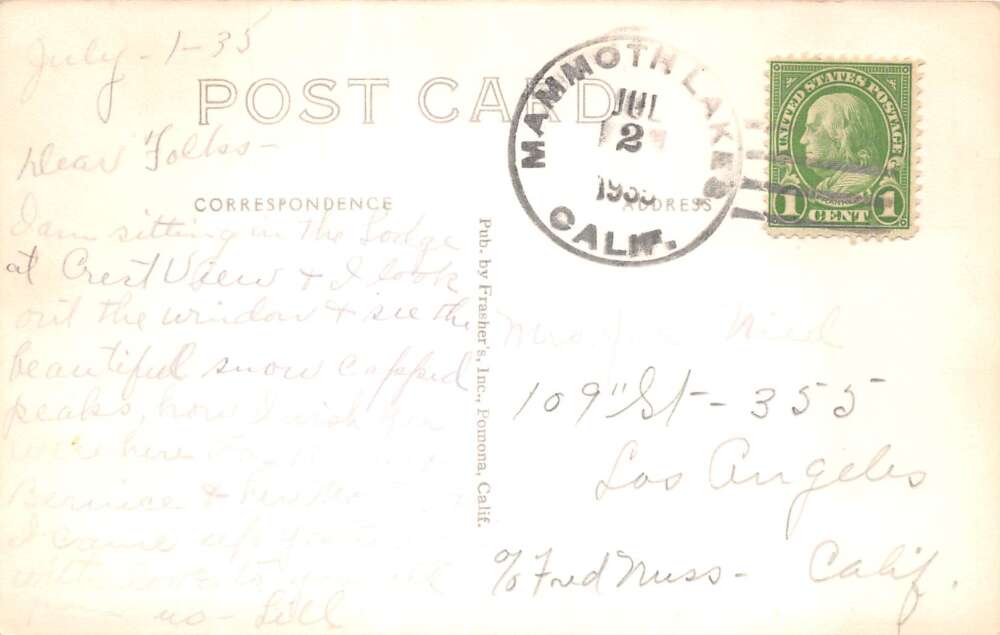 July-1-35
POST CARD
MAMMOTH LAKES
JUL
2
1935
CALIF.
UNITED STATES POSTAGE
FRANKLIN
1 CENT 1
Dear Folks-
CORRESPONDENCE
ADDRESS
I am sitting in the Lodge
at Crest View & I look
out the window & see the
beautiful snow capped
peaks, how I wish you
were here
Bernice &
I came up
with love to you all
from us - Lill
Pub. by Frasher's, Inc., Pomona, Calif.
Mrs.
109" St - 355
Los Angeles
% Fred Nuss - Calif.